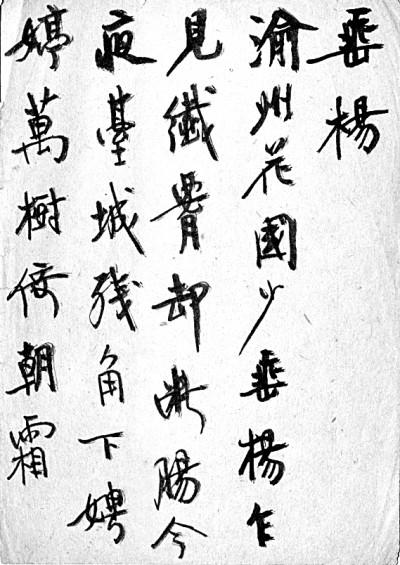 垂楊
渝州花國少垂楊乍
見纖腰却斷腸今
夜臺城残角下娉
婷萬樹倚朝霜